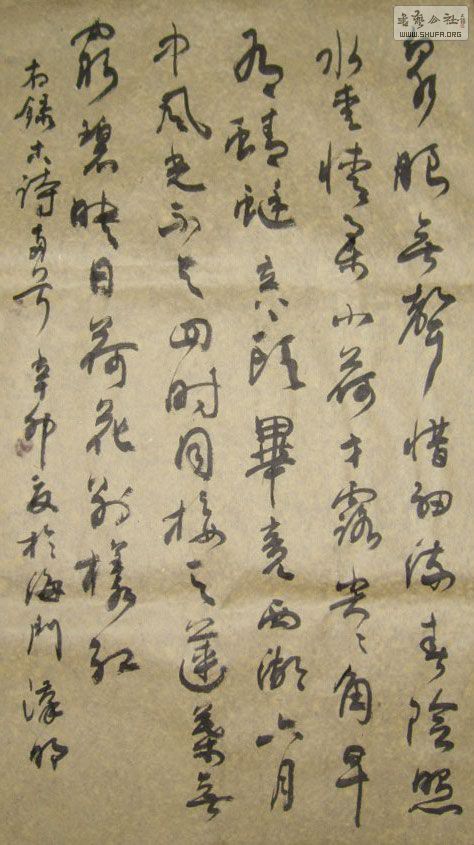 書藝公社
WWW.SHUFA.ORG
泉眼無聲惜細流春陰照
水愛晴柔小荷才露尖々角早
有蜻蜓立上頭畢竟西湖六月
中風光不与四時同接天蓮葉無
窮碧映日荷花別樣紅
右録古詩兩首辛卯夏於海門漢明